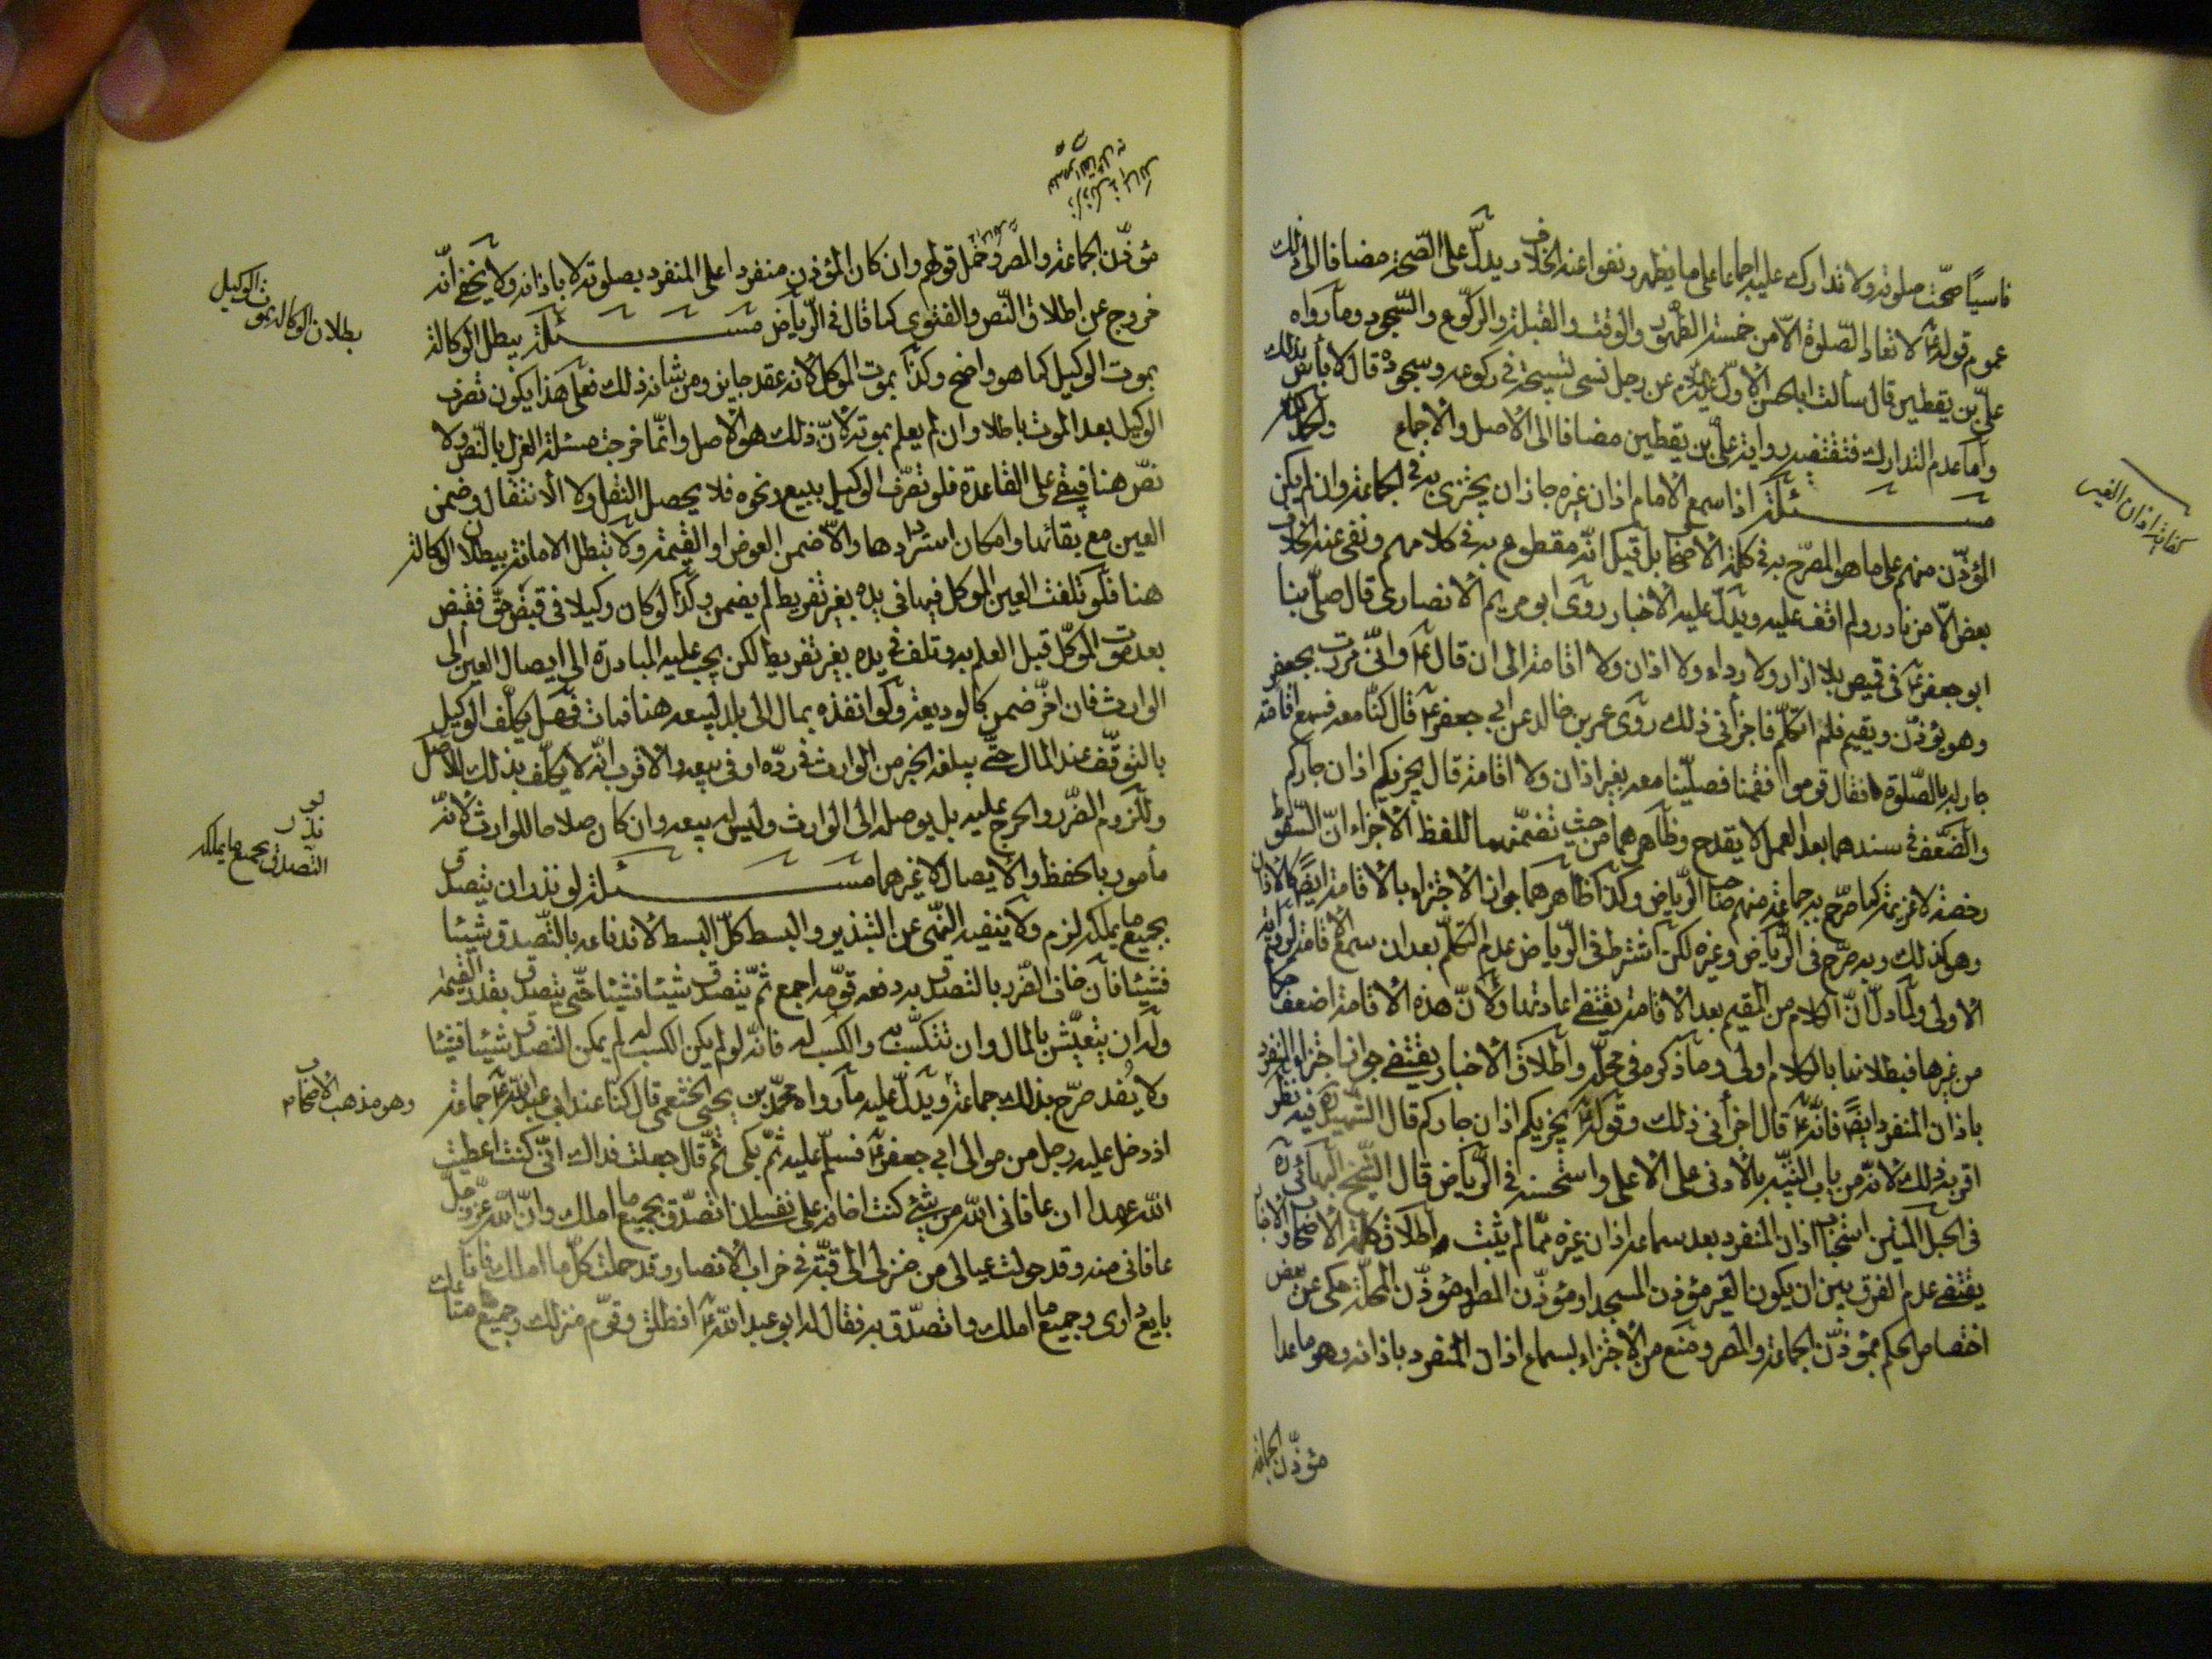 ناسيًا صحّت صلوته ولا تدارك عليه اجماعا على ما يظهر ونفوا عنه الخلاف ويدلّ على الصّحّة مضافا الى ذلك
عموم قوله ع لا تعاد الصّلوة الّا من خمسة الطّهور والوقت والقبلة والركّوع والسّجود وما رواه
علىّ بن يقطين قال سألت ابا الحسن الاوّل عن رجل نسى تسبيحة في ركوعه وسجوده قال لا بأس بذلك
وامّا عدم التدارك فتقتضيه رواية علىّ بن يقطين مضافا الى الاصل والاجماع
مسئلة اذا سمع الامام اذان غيره جاز ان يجتزى به في الجماعة وان لم يكن
المؤذّن منهم على ما هو المصرّح به في كلمة الاصحاب بل قيل انّه مقطوع به في كلامهم ونفى عنه الخلاف
بعض الّا من نادر ولم اقف عليه ويدلّ عليه الاخبار روى ابو مريم الانصارى قال صلّى بنا
ابو جعفر ع في قميص بلا ازار ولا رداء ولا اذان ولا اقامة الى ان قال ع وانّى مررت بجعفر
وهو يؤذّن ويقيم فلم اتكلّم فاجزأنى ذلك روى عمر بن خالد عن ابي جعفر ع قال كنّا معه فسمع اقامة
جار له بالصّلوة فقال قوموا فقمنا فصلّينا معه بغير اذان ولا اقامة قال يجزيكم اذان جاركم
والضّعف في سندهما بعد العمل لا يقدح وظاهرهما من حيث تضمّنهما للفظ الاجزاء انّ السّقوط
رخصة لا عزيمة كما صرّح به جماعة منهم صاحب الرّياض وكذا ظاهرهما جواز الاجتزاء بالاقامة ايضًا كالاذان
وهو كذلك وبه صرّح في الرّياض وغيره لكن اشترط في الرّياض عدم التكلّم بعد ان سمع الاقامة لرواية
الاولى ولما دلّ انّ الكلام من المقيم بعد الاقامة يقتضى اعادتها ولأنّ هذه الاقامة اضعف حكما
من غيرها فبطلانها بالكلام اولى وما ذكره في محلّه واطلاق الاخبار يقتضى جواز اجتزاء المنفرد
باذان المنفرد ايضًا فانّه ع قال اجزأنى ذلك وقوله ع يجزيكم اذان جاركم قال الشّهيد ره فيه نظر
اقربه ذلك لانّه من باب التنبيه بالادنى على الاعلى واستحسنه في الرّياض قال الشّيخ البهائى ره
في الحبل المتين استحباب اذان المنفرد بعد سماعه اذان غيره ممّا لم يثبت واطلاق كلمة الاصحاب والاخبار
يقتضى عدم الفرق بين ان يكون الغير مؤذن المسجد او مؤذّن المصر او مؤذّن المحلّة حكى عن بعض
اختصاص الحكم بمؤذّن الجماعة والمصر ومنع من الاجتزاء بسماع اذان المنفرد باذانه وهو ما عدا
مؤذّن الجماعة
كفاية اذان الغير
مؤذّن الجماعة والمصر وحمل قولهم وان كان المؤذن منفردا على المنفرد بصلوته لا باذانه ولا يخفى انّه
خروج عن اطلاق النّص والفتوى كما قال في الرّياض مسئلة يبطل الوكالة
بموت الوكيل كما هو واضح وكذا بموت الموكل لانه عقد جايز ومن شانه ذلك فعلى هذا يكون تصرف
الوكيل بعد الموت باطلا وان لم يعلم بموته لانّ ذلك هو الاصل وانّما خرجت مسئلة العزل بالنّص ولا
نصّ هنا فيبقى على القاعدة فلو تصرّف الوكيل ببيع ونحوه فلا يحصل النقل ولا الانتقال وضمن
العين مع بقائها وامكان استردادها والّا ضمن العوض او القيمة ولا تبطل الامانة ببطلان الوكالة
هنا فلو تلفت العين الموكل فيها في يده بغير تفريط لم يضمن وكذا لو كان وكيلا في قبض حقّ فقبض
بعد موت الموكّل قبل العلم به وتلف في يده بغير تفريط لكن يجب عليه المبادرة الى ايصال العين الى
الوارث فان اخّر ضمن كالوديعة ولو انفذه بمال الى بلد ليبيعه هنا فمات فهل يكلّف الوكيل
بالتوقّف عند المال حتّى يبلغه الخبر من الوارث في ردّه او في بيعه والاقرب انّه لا يكلّف بذلك للاصل
وللزوم الضّرر والحرج عليه بل يوصله الى الوارث وليس له بيعه وان كان صلاحا للوارث لانّه
مأمور بالحفظ والايصال لا غيرهما مسئلة لو نذر ان يتصدق
بجميع ما يملكه لزم ولا ينفيه النّهى عن التبذير والبسط كلّ البسط لاندفاعه بالتّصدق شيئا
فشيئا فان خاف الضّرر بالتصدق به دفعه قوّمه اجمع ثمّ يتصدق شيئا فشيئا حتّى يتصدق بقدر القيمة
وله ان يتعيّش بالمال وان يتكسّب به والكسب له فانّه لو لم يكن الكسب له لم يمكن التصدق شيئا فشيئا
ولا يُفد صرّح بذلك جماعة ويدلّ عليه ما رواه محمّد بن يحيى الخثعمى قال كنّا عند ابى عبد اللّه ع جماعة
اذ دخل عليه رجل من موالى ابي جعفر ع فسلّم عليه ثمّ بكى ثمّ قال جعلت فداك انّى كنت اعطيت
اللّه عهدا ان عافانى اللّه من شئ كنت اخافه على نفسى ان اتصدّق بجميع ما املك وانّ اللّه عزّ وجلّ
عافانى منه وقد حولت عيالى من منزلى الى قبّة في خراب الانصار وقد حملت كلّ ما املك فانا
بايع دارى وجميع ما املك واتصدّق به فقال له ابو عبد اللّه ع انطلق وقوّم منزلك وجميع متاعك
بطلان الوكالة بموت الوكيل
نذر
التصدق بجميع ما يملكه
وهو مذهب الاصحاب